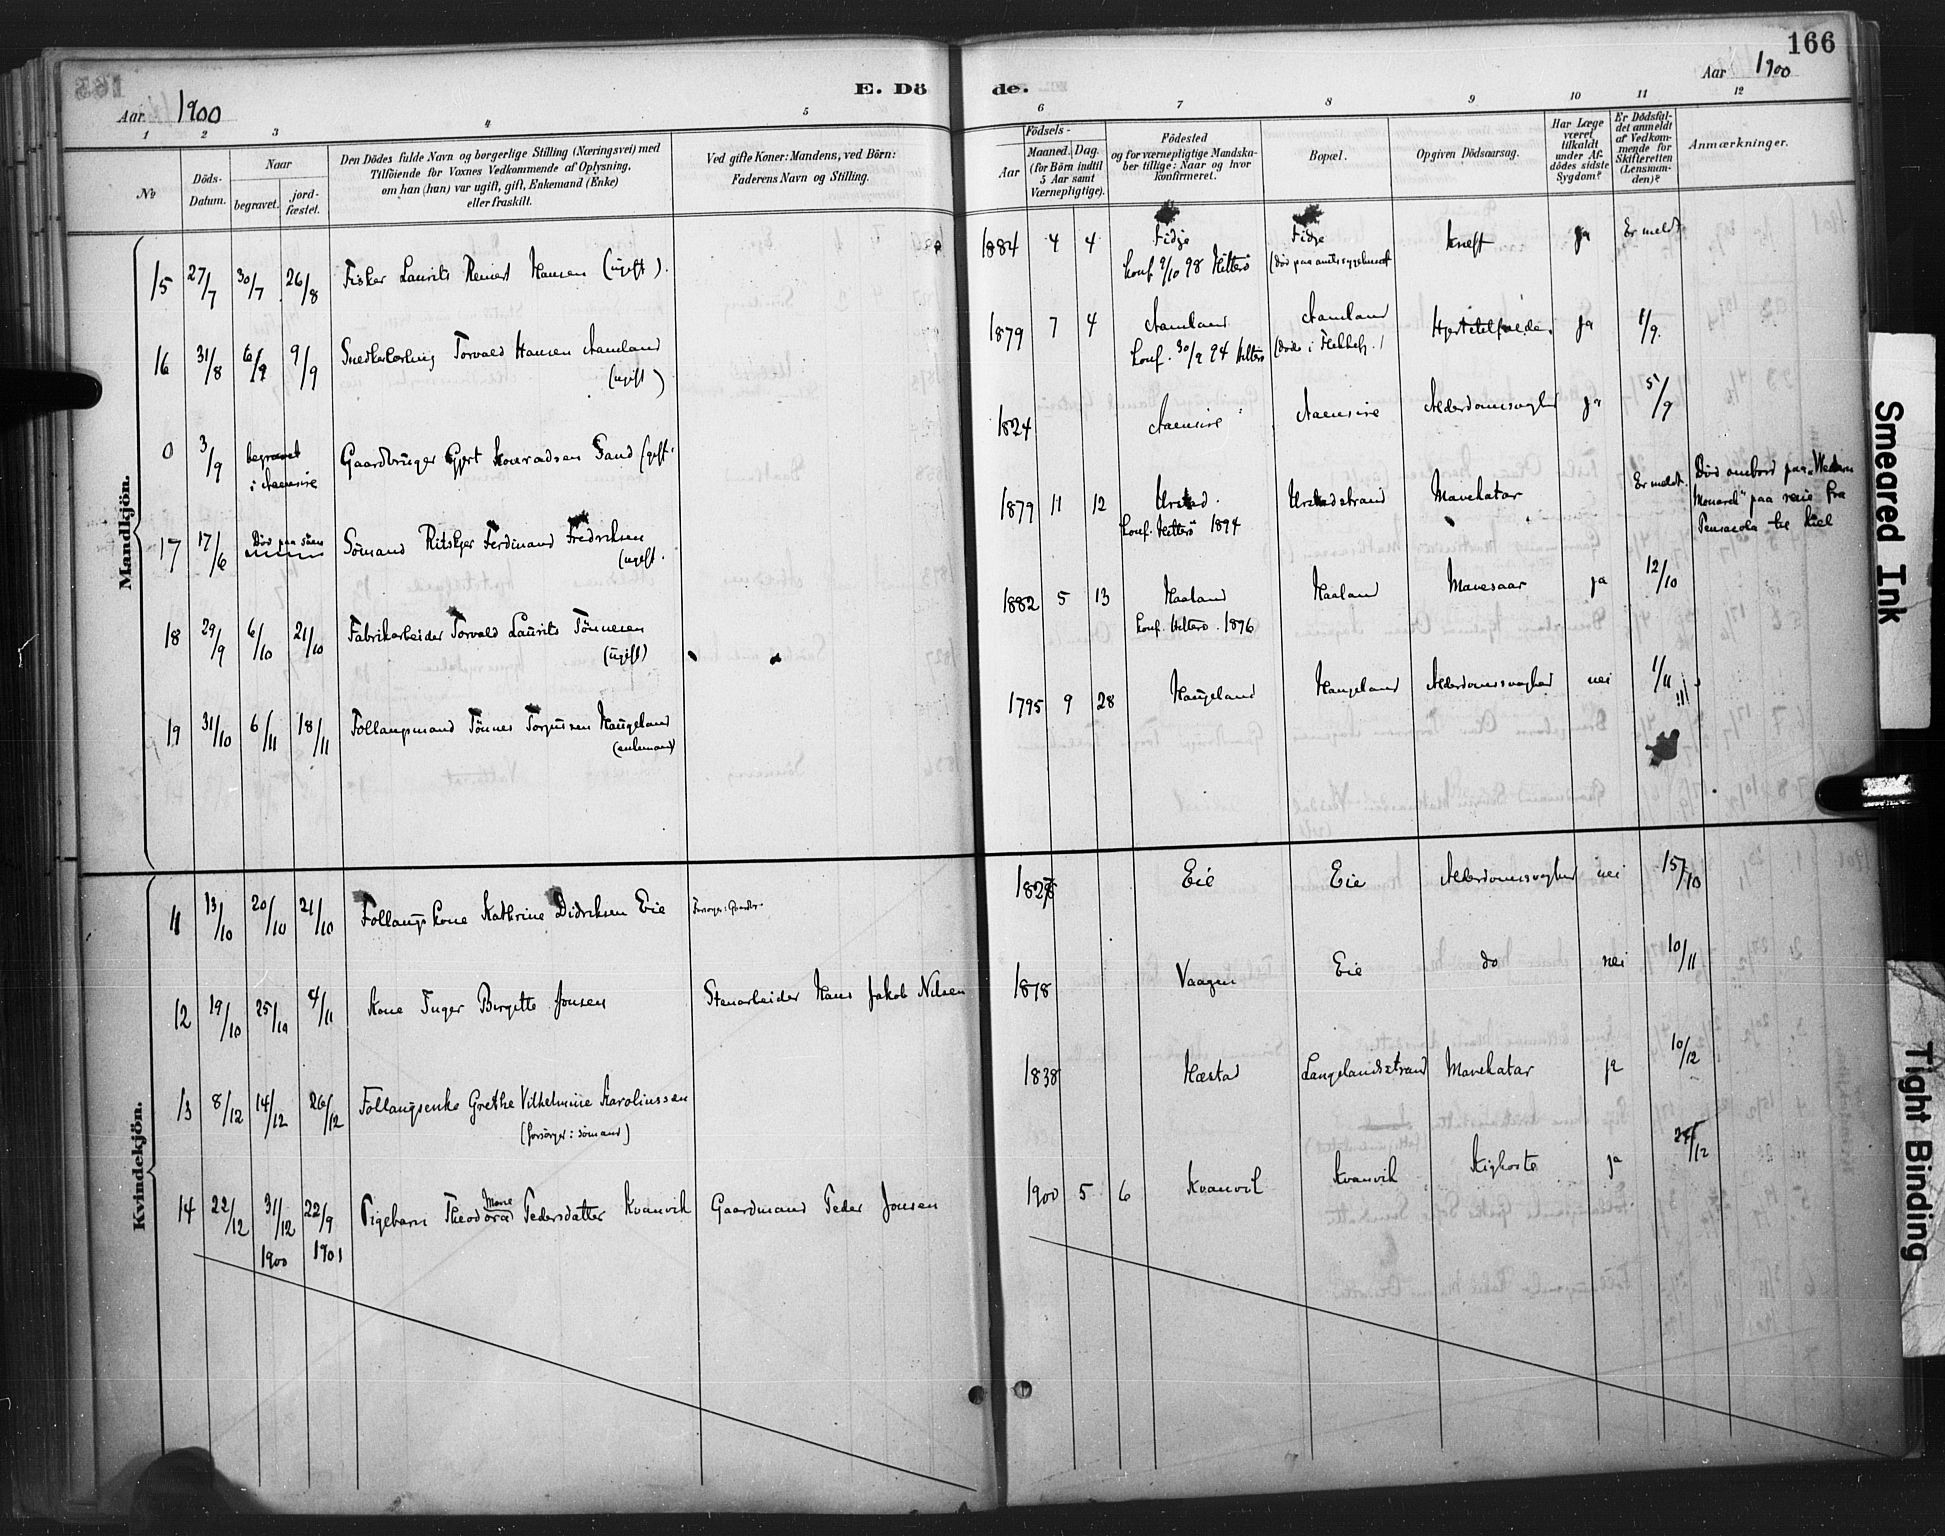 166
E. Döde.
Aar 1900
Aar 1900
1 2 3 4 5 6 7 8 9 10 11 12
No
Döds-Datum.
Naar
begravet.
jord-fæstet.
Den Dödes fulde Navn og borgerlige Stilling (Næringsvei) med
Tilföiende for Voxnes Vedkommende af Oplysning,
om han (hun) var ugift, gift, Enkemand (Enke)
eller fraskilt.
Ved gifte Koner: Mandens, ved Börn:
Faderens Navn og Stilling.
Födsels-
Aar
Maaned. Dag.
(for Börn indtil
5 Aar samt
Værnepligtige).
Födested
og for værnepligtige Mandska-
ber tillige: Naar og hvor
konfirmeret.
Bopæl.
Opgiven Dödsaarsag.
Har Læge
været
tilkaldt
under Af-
dödes sidste
Sygdom?
Er Dödsfal-
det anmeldt
af Vedkom-
mende for
Skifteretten
(Lensman-
den)?
Anmærkninger.
Mandkjön.
15 27/7 30/7 26/8 Fisker Laurits Reinert Hansen (ugift). 1884 4 4 Fidje Fidje Kræft ja Er meldt
konf. 2/10 98 Hitterö (död paa amtssygehuset
16 31/8 6/9 9/9 Snedkerlærling Torvald Hansen Aamland 1879 7 4 Aamland Aamland Hjertetilfælde. ja 1/9.
(ugift) konf. 30/9 94 Hitterö (døde i Flekkefj.)
0 3/9 begravet Gaardbruger Gjert Konradsen Sand (gift. 1824 Aaensire Aaensire Alderdomssvaghed ja 5/9
i Aaensire
17 17/6 Död paa söen Sömand Ritskjer Ferdinand Fredriksen 1879 11 12 Urstad. Urstadstrand Mavekatar Er meldt. Död ombord paa "Western
(ugift. konf. Hitterö 1894 Monarch" paa reise fra
Pensacola til Kiel
18 29/9 6/10 21/10 Fabrikarbeider Torvald Laurits Tönnesen 1882 5 13 Haaland Haaland Mavesaar ja 12/10
(ugift) konf. Hitterö. 1896
19 31/10 6/11 18/11 Follaugsmand Tönnes Torgussen Haugeland 1795 9 28 Haugeland Haugeland Alderdomssvaghed nei 1/11
(enkemand) !!!
Kvindekjön.
11 13/10 20/10 21/10 Follaugskone Kathrine Didriksen Eie Eie Eie Alderdomssvaghed nei 15/10
12 19/10 25/10 4/11 Kone Inger Birgitte Jonsen Stenarbeider Hans Jakob Nilsen 1818 Vaagen Eie do nei 10/11
13 8/12 14/12 26/12 Follaugsenke Grethe Vilhelmine Karoliussen 1838 Hæstad Langelandsstrand Mavekatar ja 10/12
(forsörger: sömand)
14 22/12 31/12 1900 22/9 1901 Pigebarn Theodora Marie Pedersdatter Kvanvik Gaardmand Peder Jonsen 1900 5 6 Kvanvik Kvanvik Kighoste ja
Smeared Ink
Tight Binding